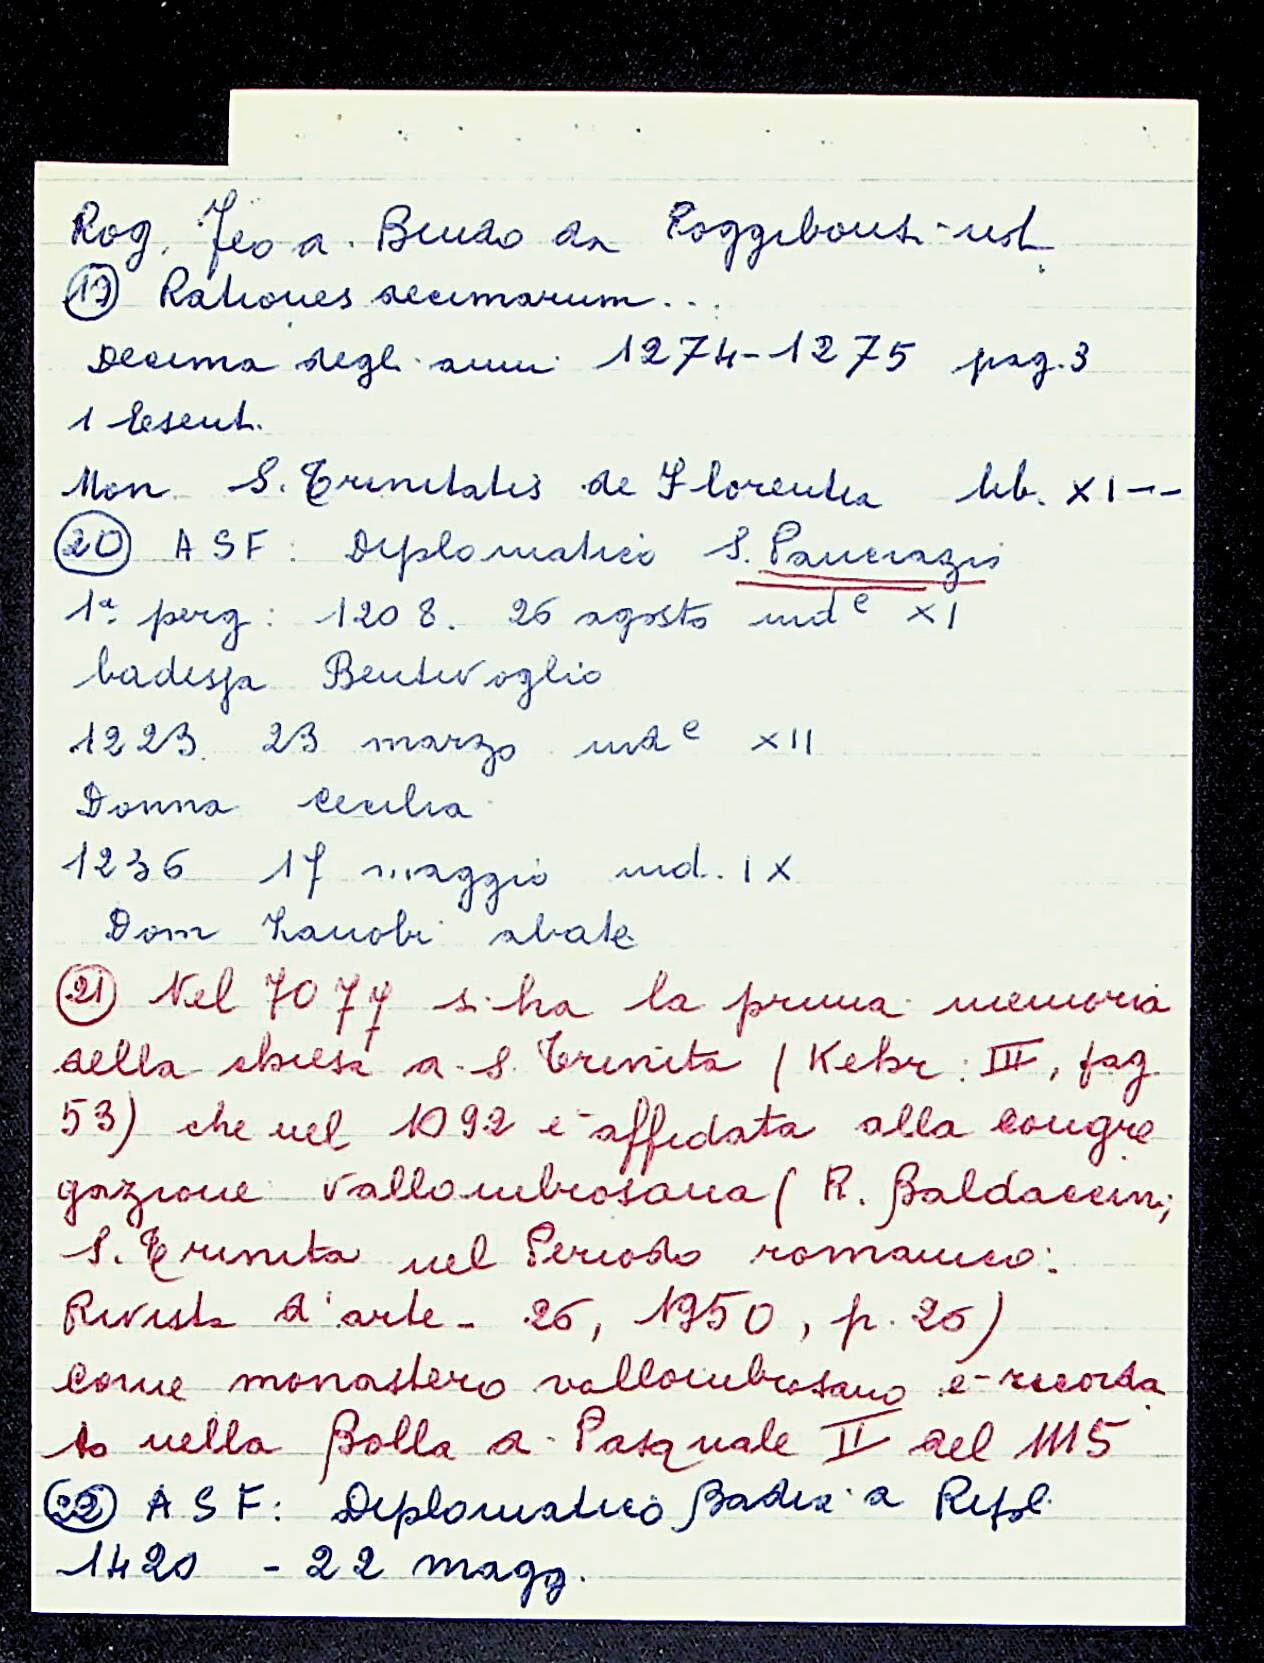 Rog. Feo di Bindo da Poggibonsi not.
(19) Rationes decimarum...
Decima degli anni 1274-1275 pag. 3
1 Esenti.
Mon. S. Trinitatis de Florentia lib. XI --
(20) ASF: Diplomatico S. Pancrazio
1ª perg: 1208. 26 agosto indᵉ XI
badessa Bentivoglio
1223. 23 marzo indᵉ XII
Donna Cecilia
1236 17 maggio ind. IX
Dom Zanobi abate
(21) Nel 1077 si ha la prima memoria
della chiesa di S. Trinita (Kehr: III, pag
53) che nel 1092 è affidata alla congre
gazione vallombrosana (R. Baldaccini,
S. Trinita nel Periodo romanico:
Rivista d'arte - 26, 1950, p. 26)
Come monastero vallombrosano è ricorda
to nella Bolla di Pasquale II del 1115
(22) ASF: Diplomatico Badia a Ripoli
1420 - 22 magg.